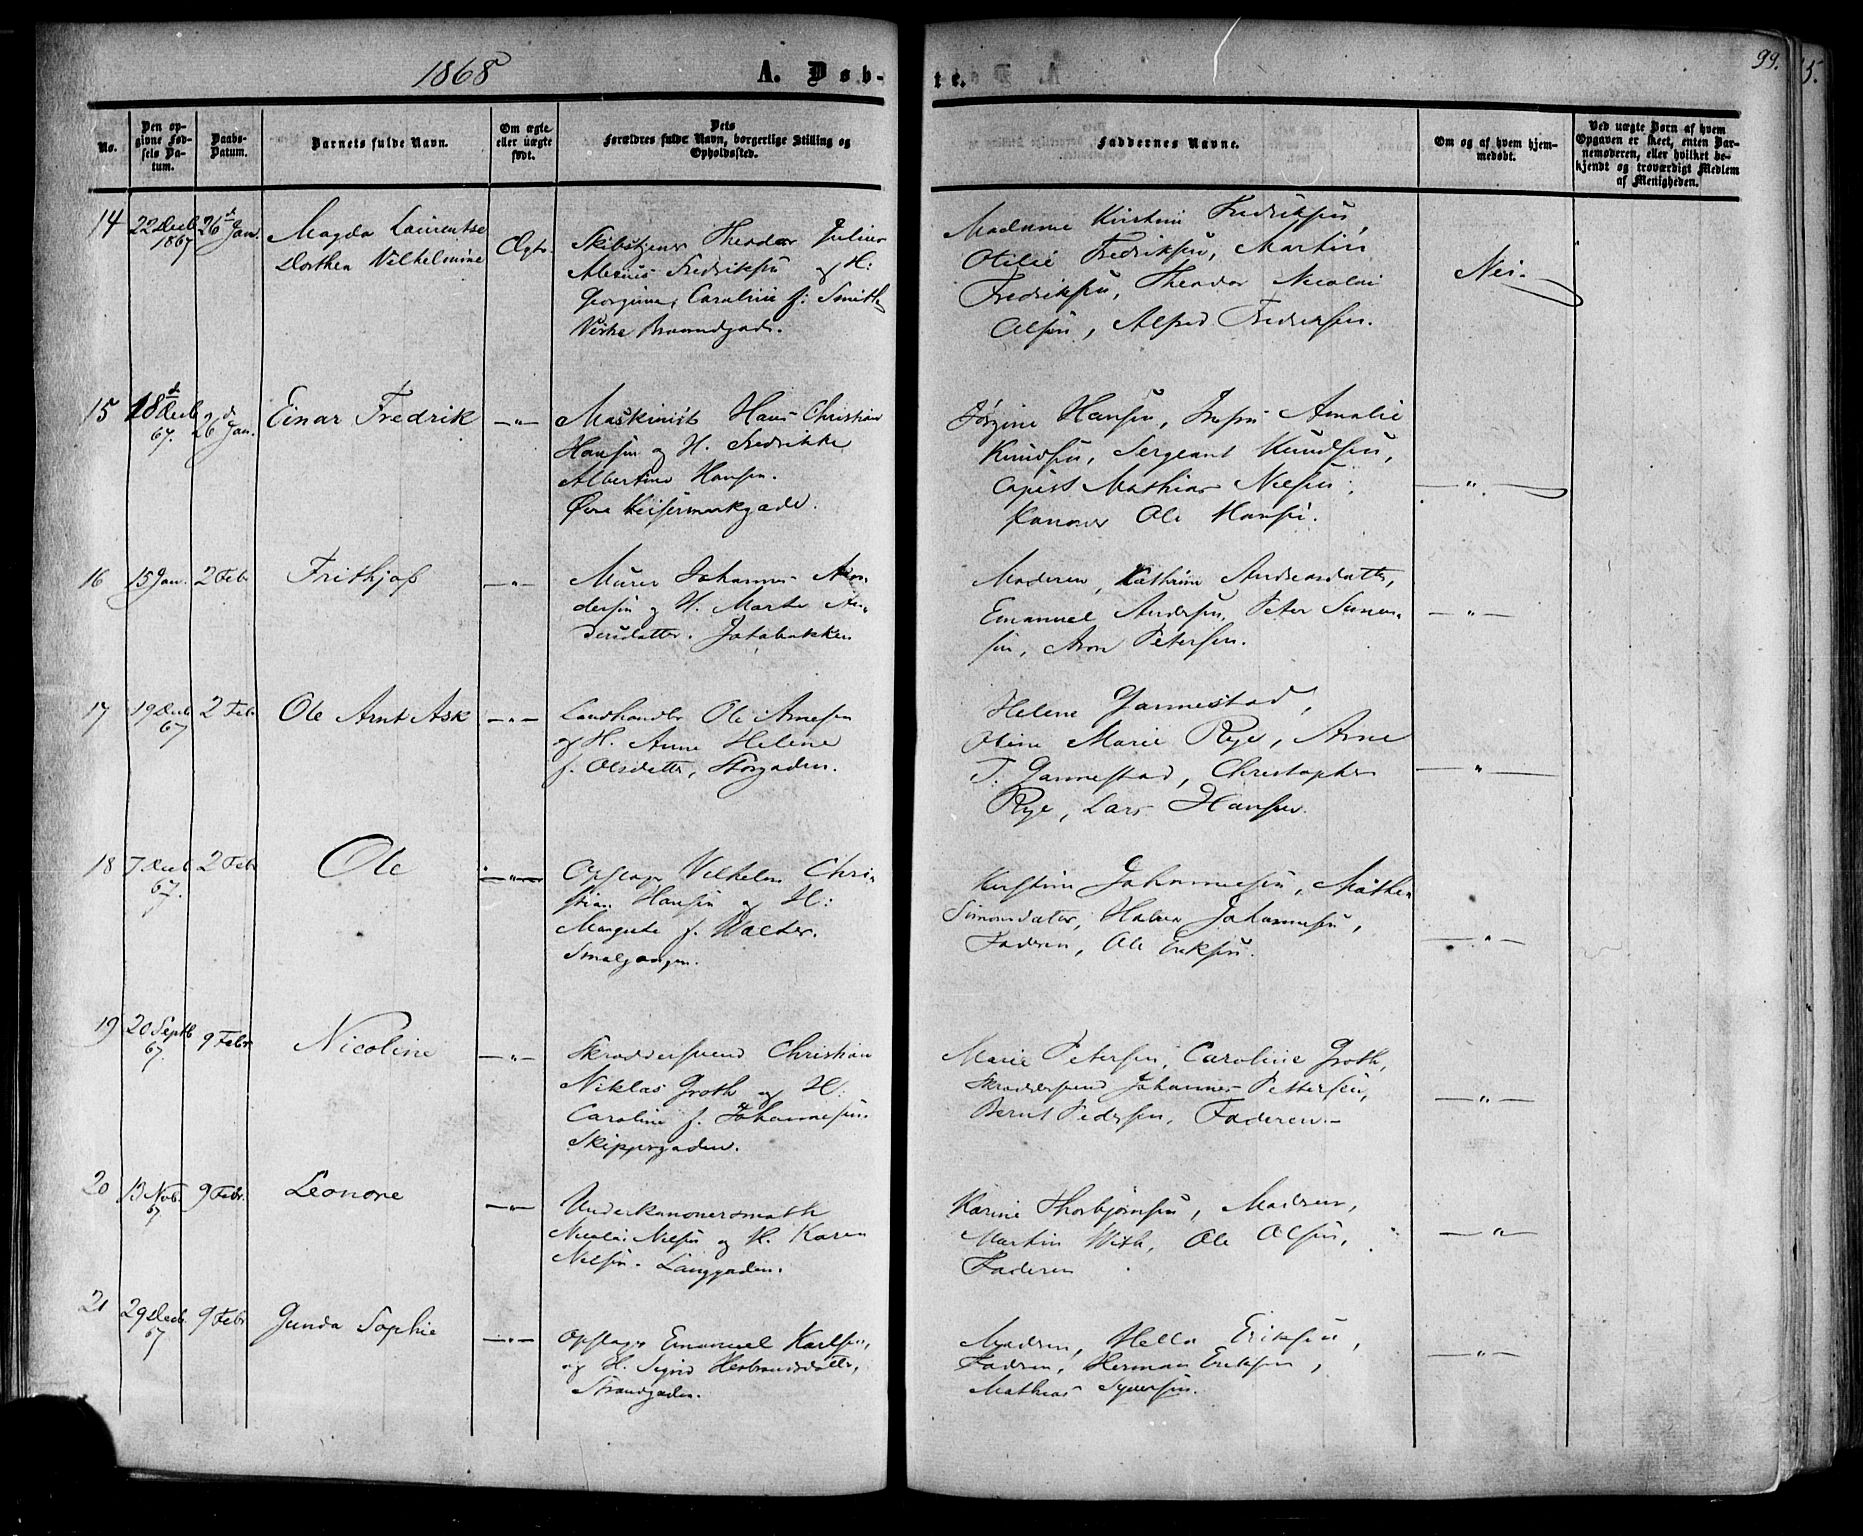 1868
A. Døb-
te.
99.
5.
No.
Den op-
givne Fød-
sels Da-
tum.
Daabs-
Datum.
Barnets fulde Navn.
Om ægte
eller uægte
født.
Dets
Forældres fulde Navn, borgerlige Stilling og
Opholdssted.
Faddernes Navne.
Om og af hvem hjem-
medøbt.
Ved uægte Børn af hvem
Opgaven er skeet, enten Bar-
nemoderen, eller hvilket be-
kjendt og troværdigt Medlem
af Menigheden.
14
22 Decb
1867
26d Jan.
Magda Laurentse
Dorthea Vilhelmine
Ægte
Theodor Julius
Fredriksen og H:
Georgine, Caroline f: Smith
Madame Kirstine Fredriksen,
Otilie Fredriksen, Martin
Fredriksen, Theodor Nicolai
Olsen, Alfred Fredriksen.
Nei.
15
18d Decb
67.
26d Jan.
Einar Fredrik
—"—
Maskinist Hans Christian
Hansen og H. Fredrikke
Albertine Hansen.
Øvre Keisermarkgade.
Jørgine Hansen, Amalie
Knudsen, Sergeant Knudsen,
Mathias Nilsen,
Kanoner Ole Hansen.
—"—
16
15 Jan.
2 Febr
Frithjof
—"—
Murer Johannes An-
dersen og H. Marte An-
dersdatter.
Moderen, Kathrine Andreasdatter,
Emanuel Andersen, Peter Simon-
sen, Aron Petersen.
—"—
17
19 Decb
67
2 Feb.
Ole Arnt Ask
—"—
Landhandler Ole Arnesen
og H. Anne Helene
f. Olsdatter, Storgaden.
Helene Jannestad,
Oline Marie Rye, Arne
T. Jannestad, Christopher
Rye, Lars Hansen.
—"—
18
7 Decb
67.
2 Febr
Ole
—"—
Opslager Vilhelm Chri-
stian Hansen og H:
Margrete f. Walter.
Smalgangen.
Kirstine Johannesen, Mathea
Simonsdatter, Johannesen,
Faderen, Ole Eriksen.
—"—
19
20 Septb
67.
9 Febr
Nicoline
—"—
Skræddersvend Christian
Niklas Groth og H:
Caroline f. Johannesen.
Skippergaden.
Marie Petersen, Caroline Groth,
Skræddersvend Johannes Pettersen,
Bernt Pedersen, Faderen.—
—"—
20
13 Novb.
67.
9 Febr.
Leonore
—"—
Underkanonersmath
Nicolai Nilsen og H. Karen
Nilsen. Langgaden.
Karine Thorbjørnsen, Modren,
Martin With, Ole Olsen,
Faderen
—"—
21
29 Decb.
67
9 Febr
Gunda Sophie
—"—
Opslager Emanuel Karlsen,
og H. Sigrid Herbrandsdatter,
Strandgaden.
Modren, Hella Eriksen,
Fadren, Herman Eriksen,
Mathias Syversen.
—"—